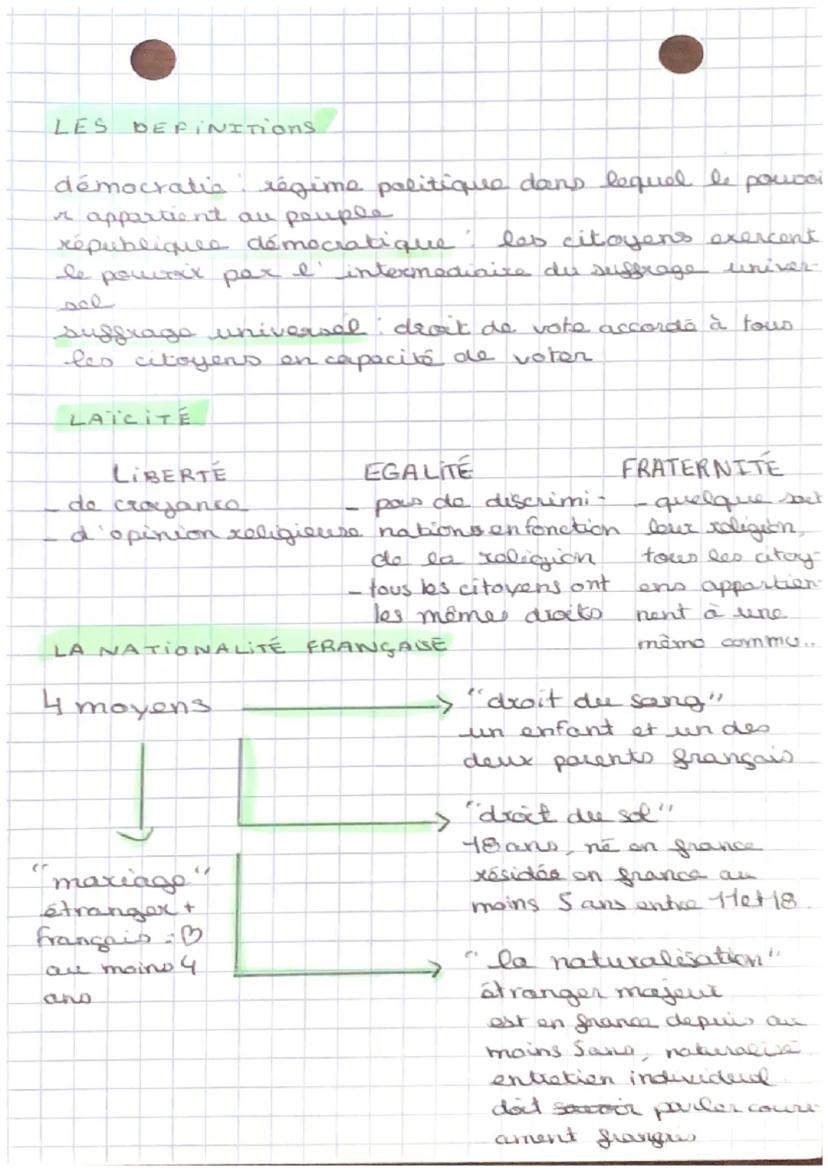 LES DEFINITIONS
démocratie : régime politique dans lequel le pouvoi
r appartient au peuple
républiques démocratique : les citoyens exercent
le pouvoir par l'intermediaire du suffrage univer-
sel
suffrage universel : droit de vote accordé à tous
les citoyens en capacité de voter
LAÏCITÉ
LIBERTÉ
- de croyance
- d'opinion religieuse
EGALITÉ
- pas de discrimi-
nations en fonction
de la religion
- tous les citoyens ont
les mêmes droits
FRATERNITÉ
- quelque soit
leur religion,
tous les citoy-
ens appartien-
nent à une
même commu..
LA NATIONALITÉ FRANÇAISE
4 moyens
"droit du sang"
un enfant et un des
deux parents français
"droit du sol"
18 ans, né en france
résidée en france au
moins 5 ans entre 11et18
"mariage"
étranger +
français : ♡
au moins 4
ans
"la naturalisation"
étranger majeur
est en france depuis au
moins 5ans, naturalisé
entretien individuel
doit savoir parler cour
ament français